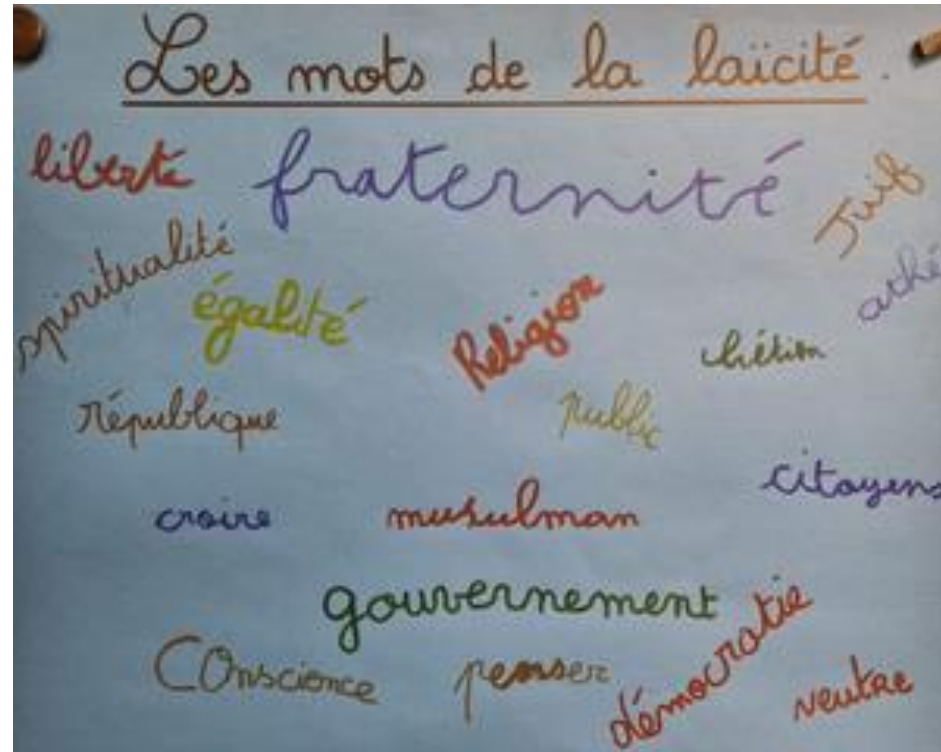 Les mots de la laïcité.
liberté
fraternité
Juif
spiritualité
égalité
Religion
athé
chrétien
république
public
citoyens
croire
musulman
gouvernement
démocratie
COnscience
penser
neutre